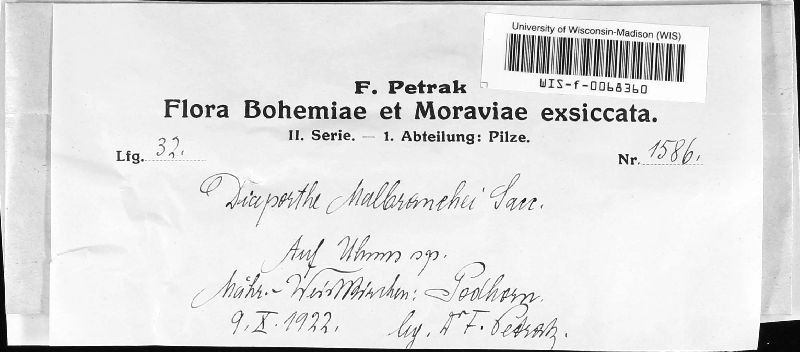 University of Wisconsin-Madison (WIS)
WIS-f-0068360
F. Petrak
Flora Bohemiae et Moraviae exsiccata.
II. Serie. — 1. Abteilung: Pilze.
Lfg. 32.
Nr. 1586.
Diaporthe Malbranchei Sacc.
Auf Ulmus sp.
Mähr.-Weisskirchen: Podhorn.
9. X. 1922. leg. Dr F. Petrak.